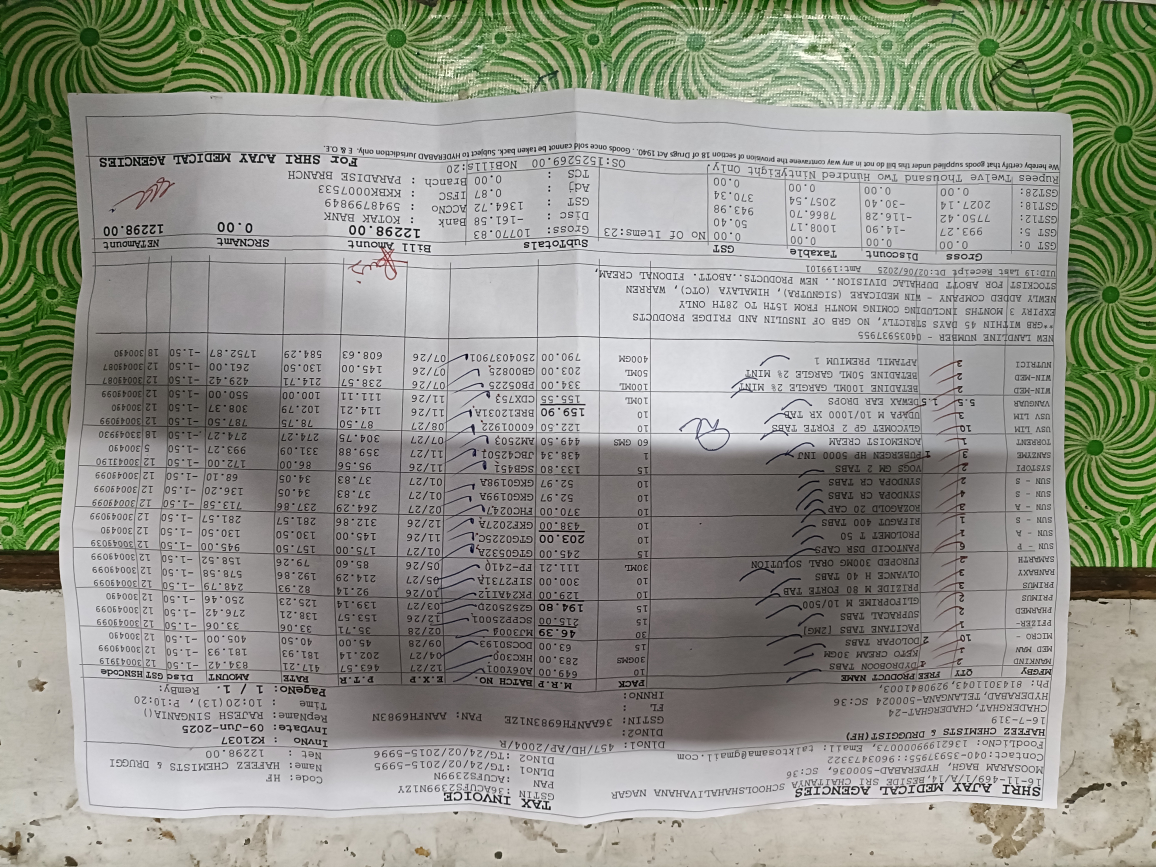 SHRI AJAY MEDICAL AGENCIES
16-11-469/1/A/14, BESIDE SRI CHAITANYA SCHOOL SHALIVAHANA NAGAR
MOOSARAM BAGH, HYDERABAD-500036, SC:36
Contact:040-35937955::9603473322
FoodLicNo: 13621999000073, Email: talktosama@gmail.com
TAX INVOICE
GSTIN :36ACUFS2399N1ZY
PAN : ACUFS2399N
DLNO1 :TG/24/02/2015-5995
DLNO2 :TG/24/02/2015-5996
Code: HF
Name: HAFEEZ CHEMISTS & DRUGGI
Net : 12298.00
HAFEEZ CHEMISTS & DRUGGIST(HF)
16-7-319
CHADERGHAT, CHADERGHAT-24
HYDERABAD, TELANGANA-500024 SC:36
Ph: 8143011043, 9290841003,
DLNO1: 457/HD/AP/2004/R
DLNO2:
GSTIN: 36AANFH6983N1ZE PAN: AANFH6983N
FL :
IRNO:
InvNo : K21037
InvDate: 09-Jun-2025
RepName: RAJESH SINGANIA()
Time : 10:20(13), P:10:20
PageNo: 1 / 1. RemBy:
MFGBY QTY FREE PRODUCT NAME PACK M.R.P BATCH NO. E.X.P P.T.R RATE AMOUNT Disc GST HSNCode
MANKIND 2 DYDROBOON TABS 10 649.00 A06Y0001 12/27 463.57 417.21 834.42 -1.50 12 30043919
MED MAN 1 KETO CREAM 30GM 30GMS 283.00 04/27 202.14 181.93 181.93 -1.50 12
MICRO - 10 2 DOLOPAR TABS 15 63.00 DOSC0193 09/28 45.00 40.50 405.00 -1.50 12 300490
PFIZER- 1 PACITANE TABS (2MG) 30 46.39 02/28 35.71 33.06 33.06 -1.50 12 30049099
PHARMED 2 SUPRACAL TABS 15 215.00 SCPZ5001 12/26 153.57 138.21 276.42 -1.50 12
PRIMUS 2 GLITOPRIME M 10/500 194.80 03/27 139.14 125.23 250.46 -1.50 12 300490
PRIMUS 3 PRIDIDE M 80 FORTE TAB 10 129.00 10/26 92.14 82.93 248.79 -1.50 12
RANBAXY 3 OLVANCE H 40 TABS 10 300.00 05/27 214.29 192.86 578.58 -1.50 12 30049099
SAMARTH 2 FUROPED 300MG ORAL SOLUTION 30ML 111.21 FP-2410 05/26 85.60 79.26 158.52 -1.50 12
SUN - P 6 PANTOCID DSR CAPS 15 245.00 GTG0532A 01/27 175.00 157.50 945.00 -1.50 12 30049039
SUN - A 1 PROLOMET T 50 10 203.00 GTG0225C 11/26 145.00 130.50 130.50 -1.50 12 300490
SUN - S 1 RIFAGUT 400 TABS 10 438.00 GKF2027A 12/26 312.86 281.57 281.57 -1.50 12 30049099
SUN - A 3 ROZAGOLD 20 CAP 10 370.00 02/27 264.29 237.86 713.58 -1.50 12 30049099
SUN - S 4 SYNDOPA CR TABS 10 52.97 GKG0199A 01/27 37.83 34.05 136.20 -1.50 12
SUN - S 2 SYNDOPA CR TABS 10 52.97 GKG0198A 01/27 37.83 34.05 68.10 -1.50 12 30049099
SYSTOPI 2 VOGS GM 2 TABS 15 133.80 11/26 95.56 86.00 172.00 -1.50 12 30041190
SANZYME 3 1 PUBERGEN HP 5000 INJ 438.34 11/27 359.88 331.09 993.27 -1.50 5 300490
TORRENT 1 ACNEMOIST CREAM 60 GMS 449.50 07/27 304.75 274.27 274.27 -1.50 18 33049930
USV LIM 10 GLYCOMET GP 2 FORTE TABS 10 122.50 60001922 08/27 87.50 78.75 787.50 -1.50 12 30049099
USV LIM 3 UDAPA M 10/1000 XR TAB 10 159.90 BRE12031A 11/26 114.21 102.79 308.37 -1.50 12 300490
VANGUAR 5.5 1.5 DEWAX EAR DROPS 10ML 155.55 11/26 111.11 100.00 550.00 -1.50 12 30049099
WIN-MED 2 BETADINE 100ML GARGLE 2% MINT 100ML 334.00 PB05225 07/26 238.57 214.71 429.42 -1.50 12 30049087
WIN-MED 2 BETADINE 50ML GARGLE 2% MINT 50ML 203.00 GB00825 07/26 145.00 130.50 261.00 -1.50 12 30049087
NUTRICI 3 APTAMIL PREMIUM 1 400GM 790.00 250403701 07/26 608.63 584.29 1752.87 -1.50 18 300490
NEW LANDLINE NUMBER - 04035937955
**GRB WITHIN 45 DAYS STRICTLY, NO GRB OF INSULIN AND FRIDGE PRODUCTS
EXPIRY 3 MONTHS INCLUDING COMING MONTH FROM 15TH TO 28TH ONLY
NEWLY ADDED COMPANY - WIN MEDICARE (SIGNUTRA), HIMALAYA (OTC), WARREN
STOCKIST FOR ABOTT DUPHALAC DIVISION.. NEW PRODUCTS..ABOTT. FIDONAL CREAM,
UID:19 Last Receipt Dt:02/06/2025 Amt:199101
Gross Discount Taxable GST Subtotals Bill Amount SRCNAmt NETAmount
GST 0: 0.00 0.00 0.00 0.00 No Of Items:23
GST 5: 993.27 -14.90 1008.17 50.40
GST12: 7750.42 -116.28 7866.70 943.98
GST18: 2027.14 -30.40 2057.54 370.34
GST28: 0.00 0.00 0.00 0.00
Gross: 10770.83
Disc : -161.58
GST : 1364.72
Adj : 0.87
TCS : 0.00
12298.00 0.00 12298.00
Bank : KOTAK BANK
ACCNo : 5948799849
IFSC : KKBK0007533
Branch : PARADISE BRANCH
Rupees Twelve Thousand Two Hundred NintyEight Only.
OS:1525269.00 NOB111s:20
For SHRI AJAY MEDICAL AGENCIES
We hereby certify that goods supplied under this bill do not in any way contravene the provision of section 18 of Drugs Act 1940. . Goods once sold cannot be taken back, Subject to HYDERABAD Jurisdiction only. E & O.E